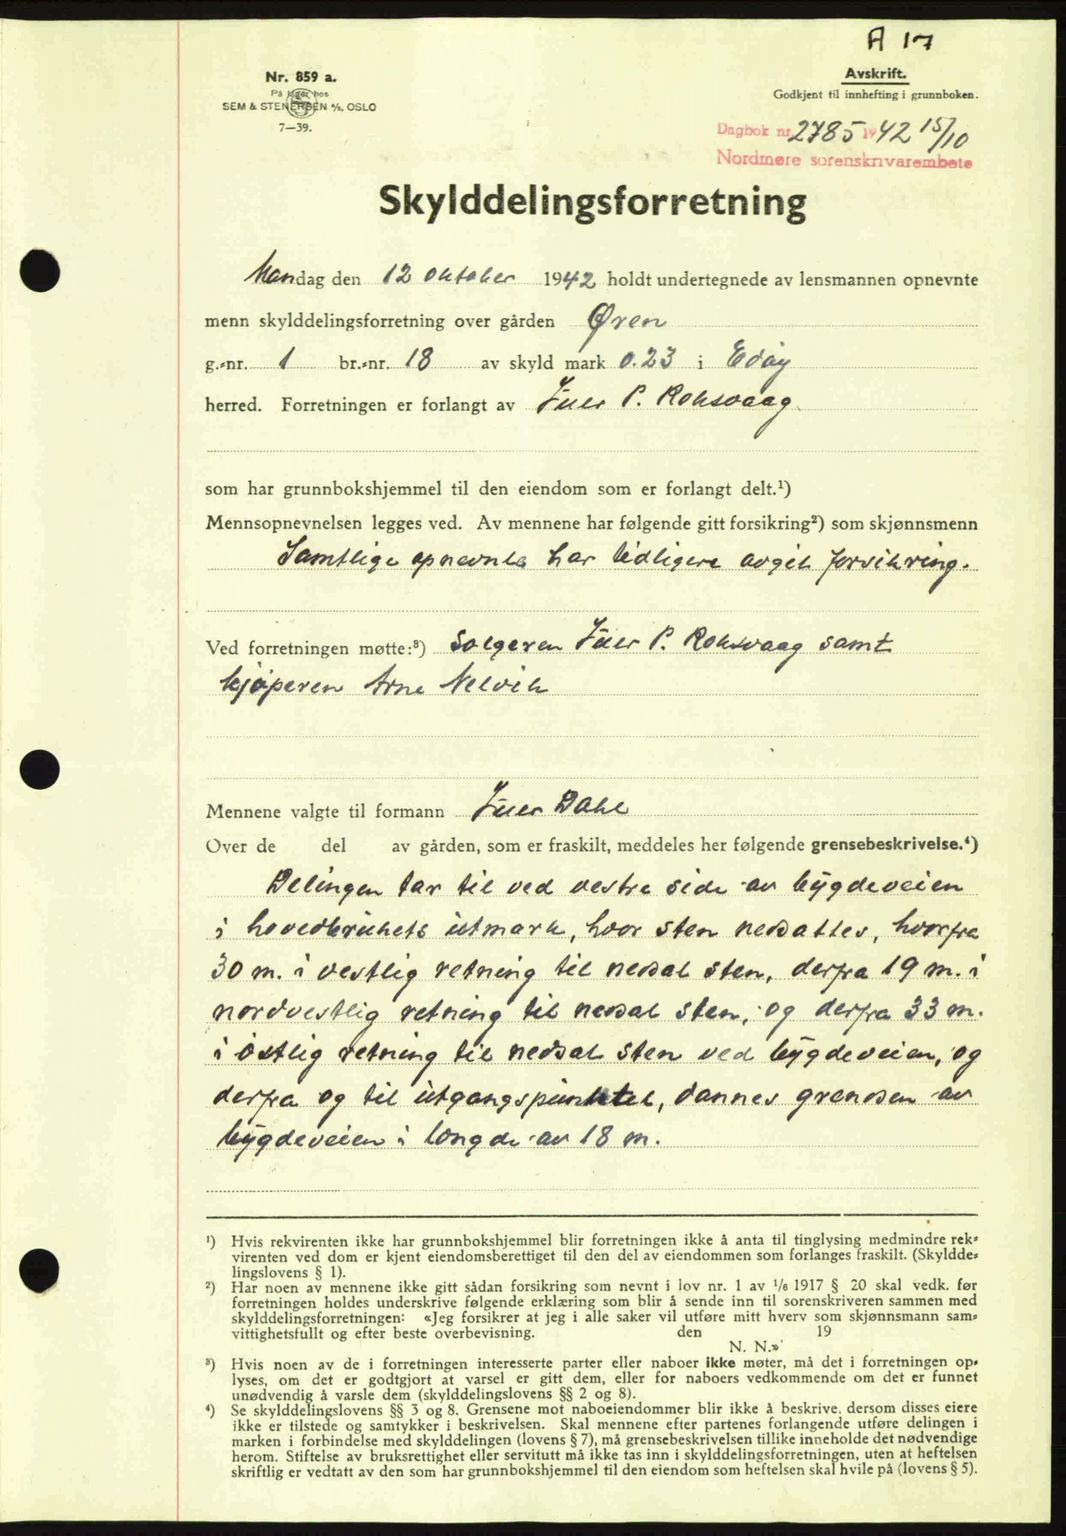 A 17
Avskrift.
Godkjent til innhefting i grunnboken.
Nr. 859 a.
På lager hos
SEM & STENERSEN A/S, OSLO
7—39.
Dagbok nr. 2785 1942 15/10
Nordmøre sorenskrivarembete
Skylddelingsforretning
Mandag den 12 oktober 1942 holdt undertegnede av lensmannen opnevnte
menn skylddelingsforretning over gården Øren
g.-nr. 1 br.-nr. 18 av skyld mark 0.23 i Edøy
herred. Forretningen er forlangt av Iver P. Roksvaag.
som har grunnbokshjemmel til den eiendom som er forlangt delt.¹)
Mennsopnevnelsen legges ved. Av mennene har følgende gitt forsikring²) som skjønnsmenn
Samtlige opnevnte har tidligere avgit forsikring.
Ved forretningen møtte:³) Selgeren Iver P. Roksvaag samt
kjøperen Arne Nelvik
Mennene valgte til formann Iver Dahl
Over de del av gården, som er fraskilt, meddeles her følgende grensebeskrivelse.⁴)
Delingen tar til ved vestre side av bygdeveien
i hovedbrukets utmark, hvor sten nedsattes, hvorfra
30 m. i vestlig retning til nedsat sten, derfra 19 m. i
nordvestlig retning til nedsat sten, og derfra 33 m.
i østlig retning til nedsat sten ved bygdeveien, og
derfra og til utgangspunktet, dannes grensen av
bygdeveien i længde av 18 m.
¹) Hvis rekvirenten ikke har grunnbokshjemmel blir forretningen ikke å anta til tinglysing medmindre rek-
virenten ved dom er kjent eiendomsberettiget til den del av eiendommen som forlanges fraskilt. (Skyldde-
lingslovens § 1).
²) Har noen av mennene ikke gitt sådan forsikring som nevnt i lov nr. 1 av 1/6 1917 § 20 skal vedk. før
forretningen holdes underskrive følgende erklæring som blir å sende inn til sorenskriveren sammen med
skylddelingsforretningen: «Jeg forsikrer at jeg i alle saker vil utføre mitt hverv som skjønnsmann sam-
vittighetsfullt og efter beste overbevisning. den 19
N. N.»
³) Hvis noen av de i forretningen interesserte parter eller naboer ikke møter, må det i forretningen op-
lyses, om det er godtgjort at varsel er gitt dem, eller for naboers vedkommende om det er funnet
unødvendig å varsle dem (skylddelingslovens §§ 2 og 8).
⁴) Se skylddelingslovens §§ 3 og 8. Grensene mot naboeiendommer blir ikke å beskrive, dersom disses eiere
ikke er tilstede og samtykker i beskrivelsen. Skal mennene efter partenes forlangende utføre delingen i
marken i forbindelse med skylddelingen (lovens § 7), må grensebeskrivelsen tillike inneholde det nødvendige
herom. Stiftelse av bruksrettighet eller servitutt må ikke tas inn i skylddelingsforretningen, uten at heftelsen
skriftlig er vedtatt av den som har grunnbokshjemmel til den eiendom som heftelsen skal hvile på (lovens § 5).